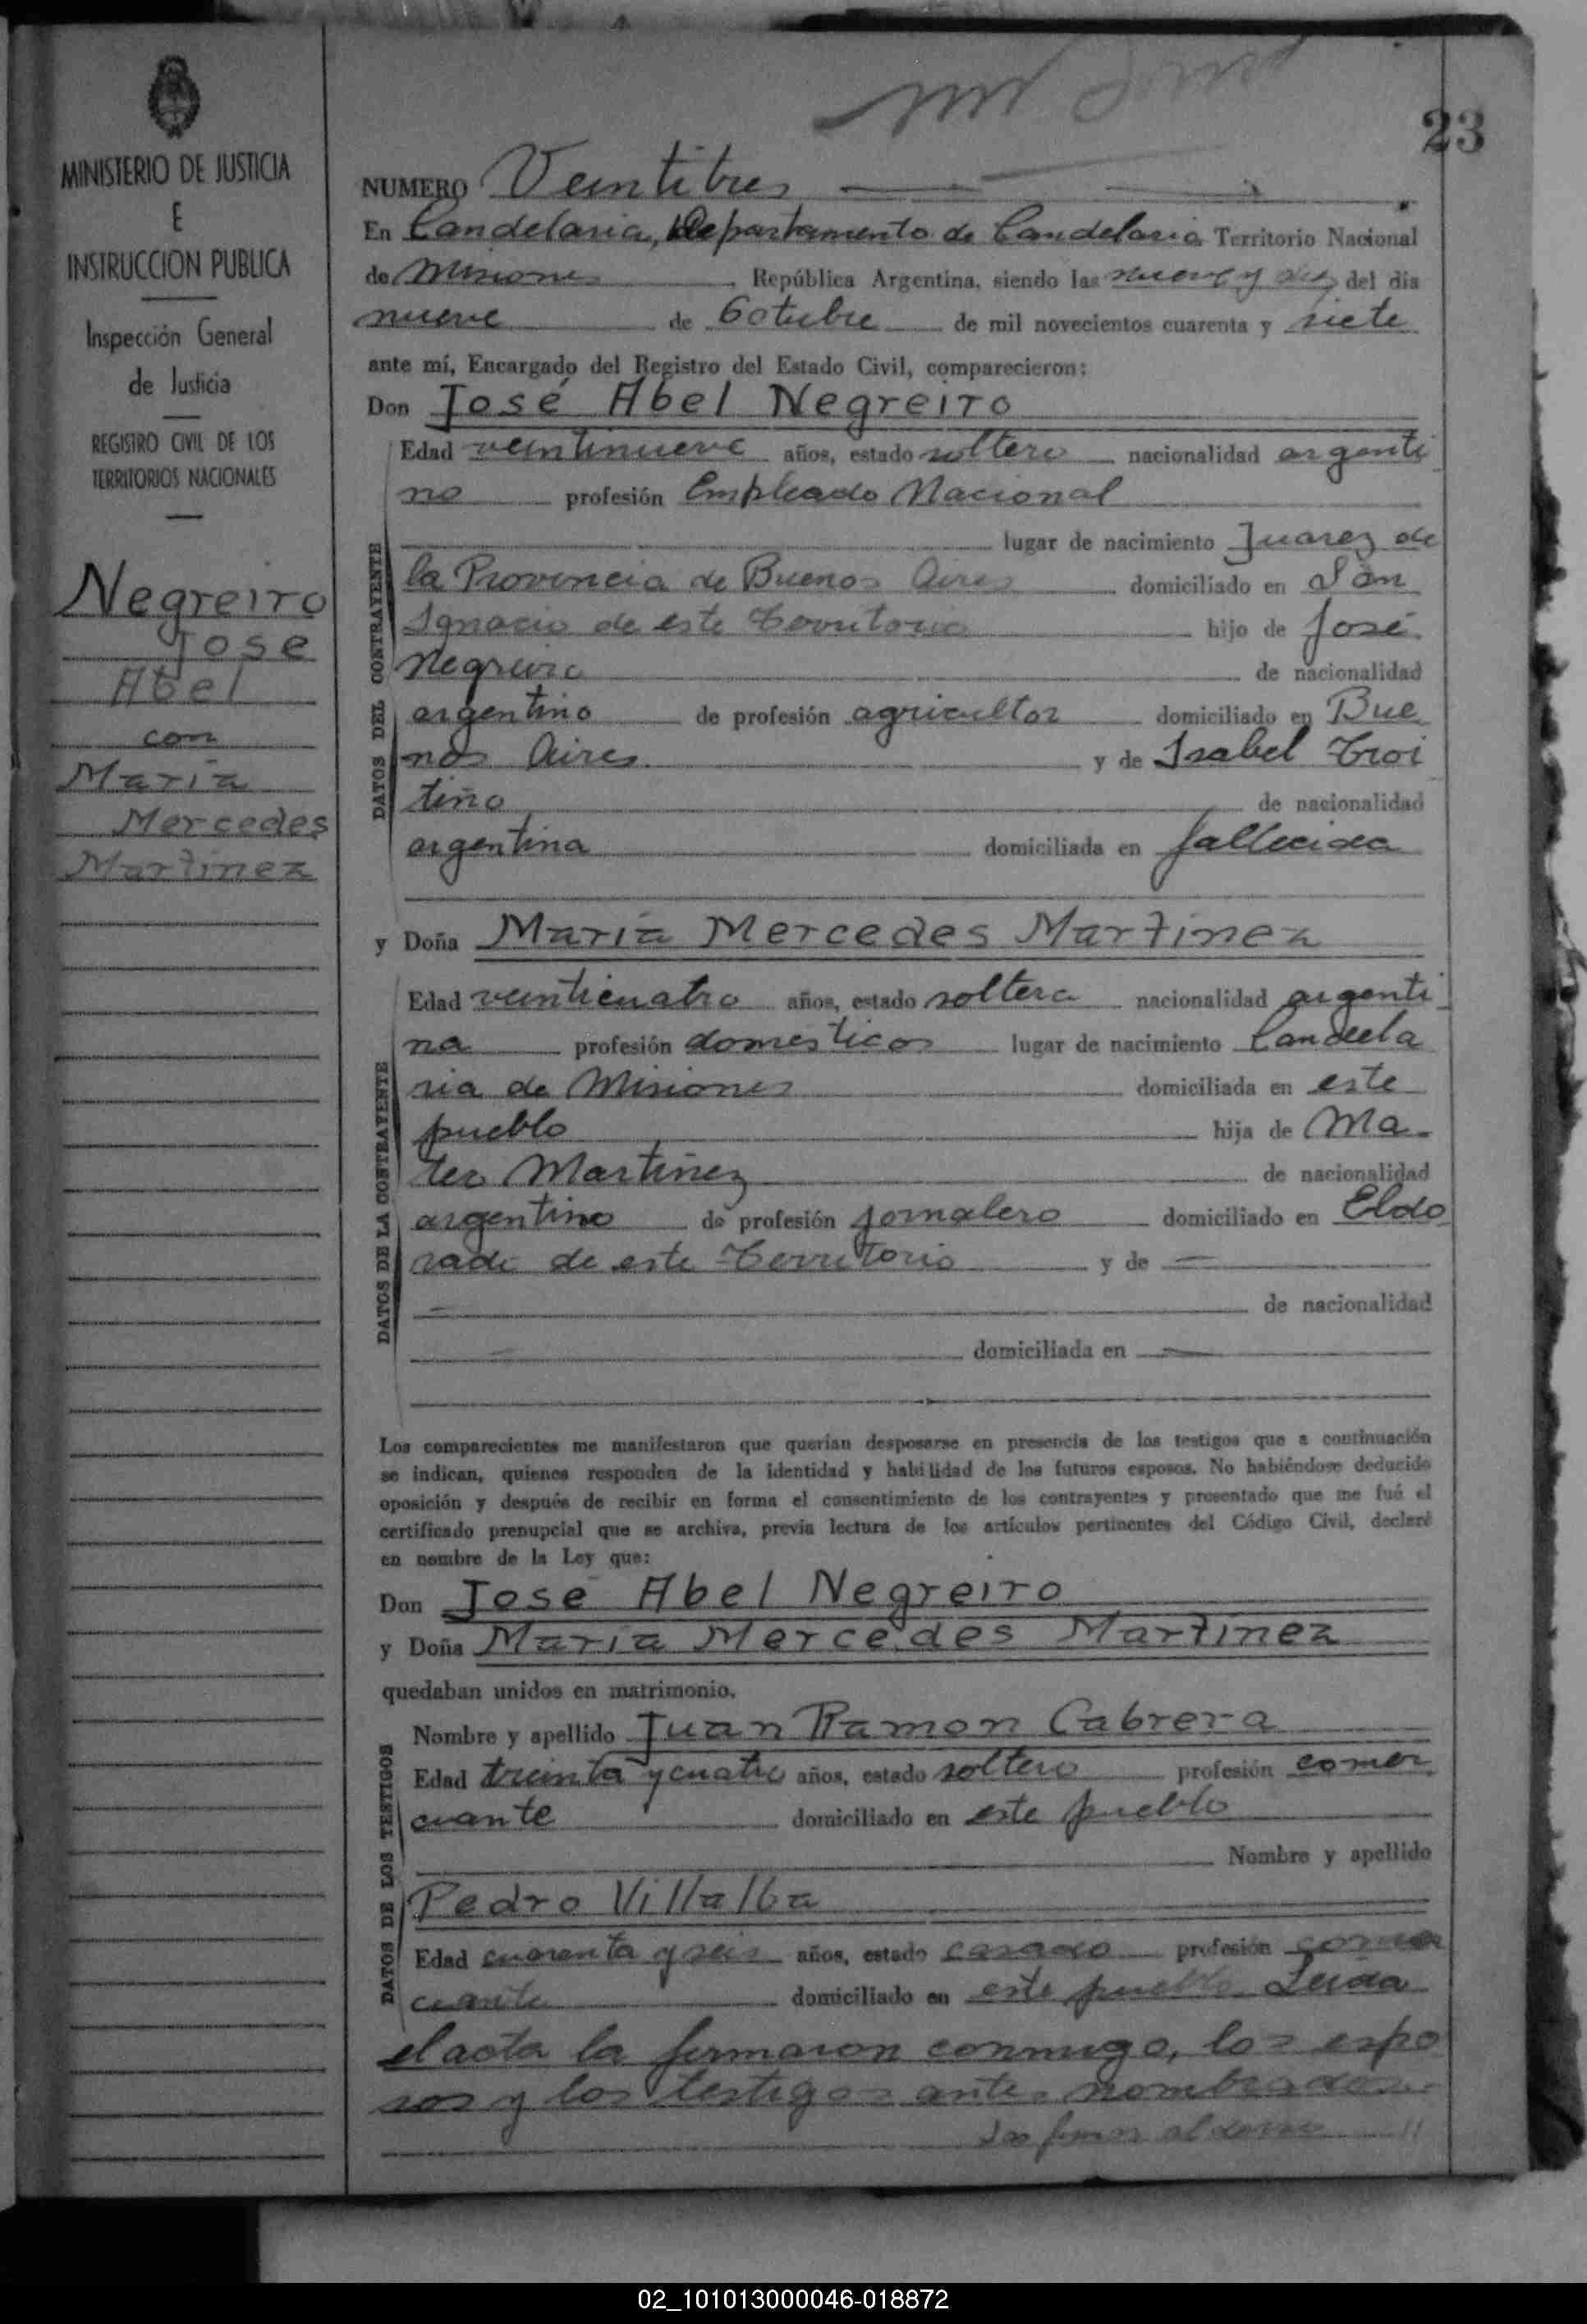 23
MINISTERIO DE JUSTICIA
E
INSTRUCCION PUBLICA
Inspección General
de Justicia
REGISTRO CIVIL DE LOS
TERRITORIOS NACIONALES
Negreiro
Jose
Abel
con
María
Mercedes
Martínez
NUMERO Veintitres
En Candelaria, Departamento de Candelaria Territorio Nacional
de Misiones República Argentina, siendo las nueve y diez del dia
nueve de Octubre de mil novecientos cuarenta y siete
ante mí, Encargado del Registro del Estado Civil, comparecieron:
Don José Abel Negreiro
DATOS DEL CONTRAYENTE
Edad veintinueve años, estado soltero nacionalidad argenti
no profesión Empleado Nacional
lugar de nacimiento Juarez de
la Provincia de Buenos Aires domiciliado en San
Ignacio de este Territorio hijo de José
Negreiro de nacionalidad
argentino de profesión agricultor domiciliado en Bue
nos Aires y de Isabel Troi
tiño de nacionalidad
argentina domiciliada en fallecida
y Doña María Mercedes Martínez
DATOS DE LA CONTRAYENTE
Edad veinticuatro años, estado soltera nacionalidad argenti
na profesión domesticos lugar de nacimiento Candela
ria de Misiones domiciliada en este
pueblo hija de Ma
teo Martinez de nacionalidad
argentino de profesión jornalero domiciliado en Eldo
rado de este Territorio y de —
— de nacionalidad
domiciliada en —
Los comparecientes me manifestaron que querían desposarse en presencia de los testigos que a continuación
se indican, quienes responden de la identidad y habilidad de los futuros esposos. No habiéndose deducido
oposición y después de recibir en forma el consentimiento de los contrayentes y presentado que me fué el
certificado prenupcial que se archiva, previa lectura de los artículos pertinentes del Código Civil, declaré
en nombre de la Ley que:
Don José Abel Negreiro
y Doña María Mercedes Martínez
quedaban unidos en matrimonio.
DATOS DE LOS TESTIGOS
Nombre y apellido Juan Ramon Cabrera
Edad treinta y cuatro años, estado soltero profesión comer
ciante domiciliado en este pueblo
Nombre y apellido
Pedro Villalba
Edad cuarenta y seis años, estado casado profesión comer
ciante domiciliado en este pueblo Leida
el acta la firmaron conmigo, los espo
sos y los testigos antes nombrados.
Las firmas al dorso //
02_101013000046-018872